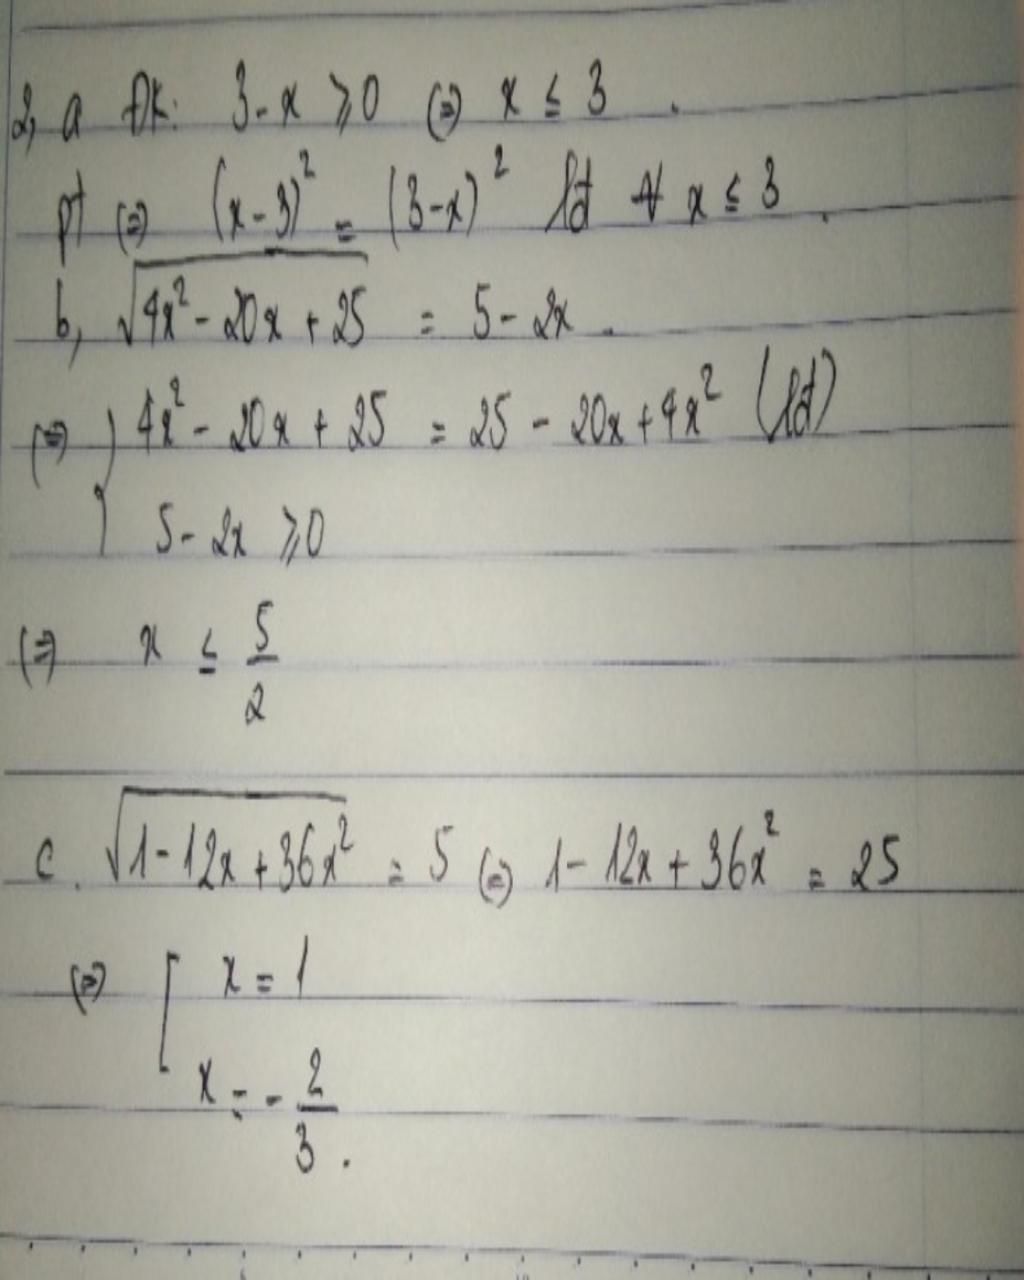 2, a ĐK: 3-x ≥ 0 (=) x ≤ 3 .
pt (=) (x-3)² = (3-x)² lđ ∀ x ≤ 3 .
b, √(4x² - 20x + 25) = 5 - 2x .
(=) { 4x² - 20x + 25 = 25 - 20x + 4x² (lđ)
5 - 2x ≥ 0
(=) x ≤ 5/2
c. √(1 - 12x + 36x²) = 5 (=) 1 - 12x + 36x² = 25
(=) [ x = 1
x = - 2/3 .